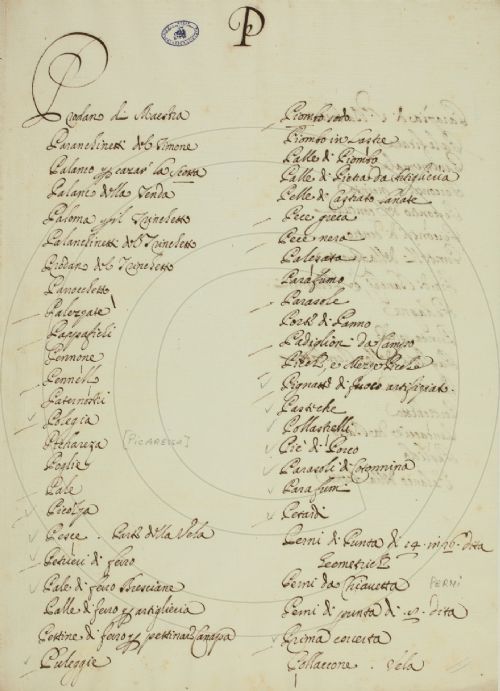 P
Prodano di Maestra
Paranchinetti del Timone
Palanco p cazar la scotta
Palanc della Tenda
Paloma p il Trinchetto
Palanchinetti del Trinchetto
Prodano del Trinchetto
Parrocchetto
Palezzate
Pappafichi
Pennone
Pennelli
Paternostri
Polegia
[PICARESSA]
Poglie
Pale
Picozza
Pesce . Parte della Vela
Petrieri di ferro
Pale di ferro Bresciane
Palle di ferro p artiglieria
Pettine di ferro p pettinar Canappa
Puleggie
Piombo sodo
Piombo in Lastre
Palle di Piombo
Palle di Pietra da Artiglieria
Pelle di Castrato lanate
Pece greca
Pece nera
Palezata
Parafumo
Parasole
Porte di Panno
Padiglion da Campo
Picche, e Mezze Picche
Pignatte di fuoco artifiziat.
Pastiche
Pollastrelli
Piè di Porco
Parasoli di Cotonnina
Parafumi
Petardi
Perni di Punta di 14. in 16. dita
Geometrich
Perni da Chiavetta PERNI
Perni di punta di dita
Prima coverta
Pollaccone . vela